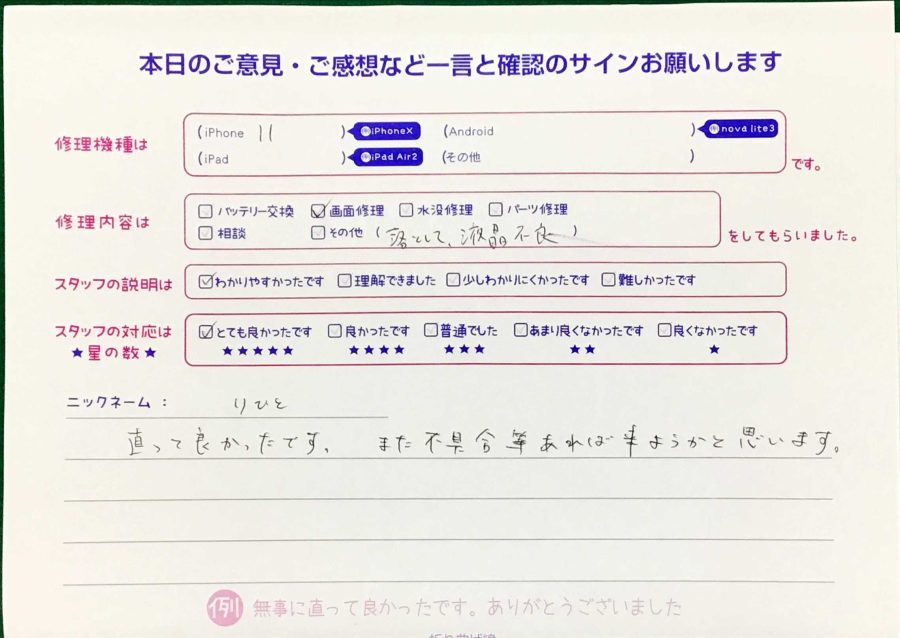 本日のご意見・ご感想など一言と確認のサインお願いします
修理機種は
(iPhone 11 ) iPhoneX (Android ) nova lite3
(iPad ) iPad Air2 (その他 ) です。
修理内容は
バッテリー交換 画面修理 水没修理 パーツ修理
相談 その他 (落として、液晶不良) をしてもらいました。
スタッフの説明は わかりやすかったです 理解できました 少しわかりにくかったです 難しかったです
スタッフの対応は とても良かったです 良かったです 普通でした あまり良くなかったです 良くなかったです
★星の数★ ★★★★★ ★★★★ ★★★ ★★ ★
ニックネーム： りひと
直って良かったです。 また不具合等あれば来ようかと思います。
例 無事に直って良かったです。ありがとうございました